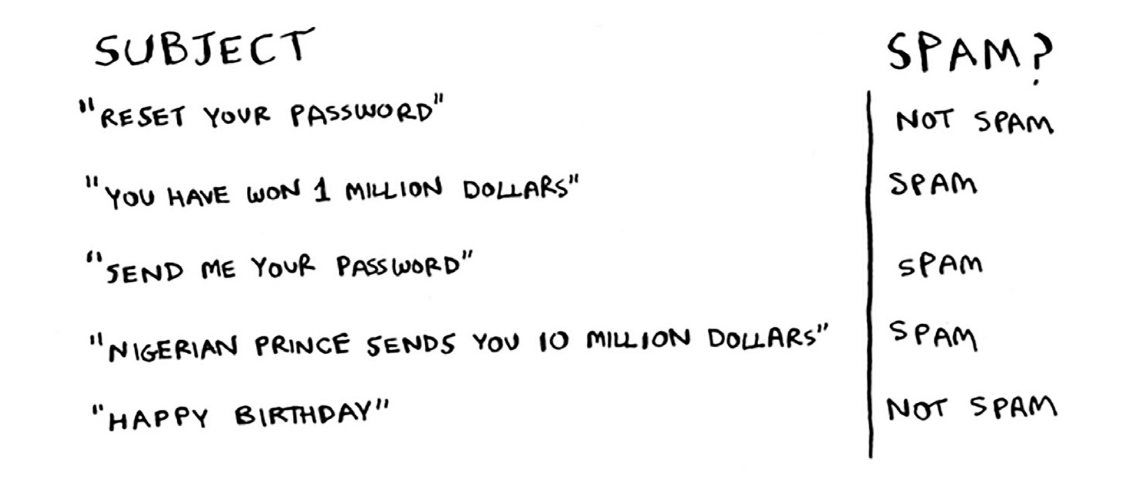 SUBJECT SPAM?
"RESET YOUR PASSWORD" NOT SPAM
"YOU HAVE WON 1 MILLION DOLLARS" SPAM
"SEND ME YOUR PASSWORD" SPAM
"NIGERIAN PRINCE SENDS YOU 10 MILLION DOLLARS" SPAM
"HAPPY BIRTHDAY" NOT SPAM